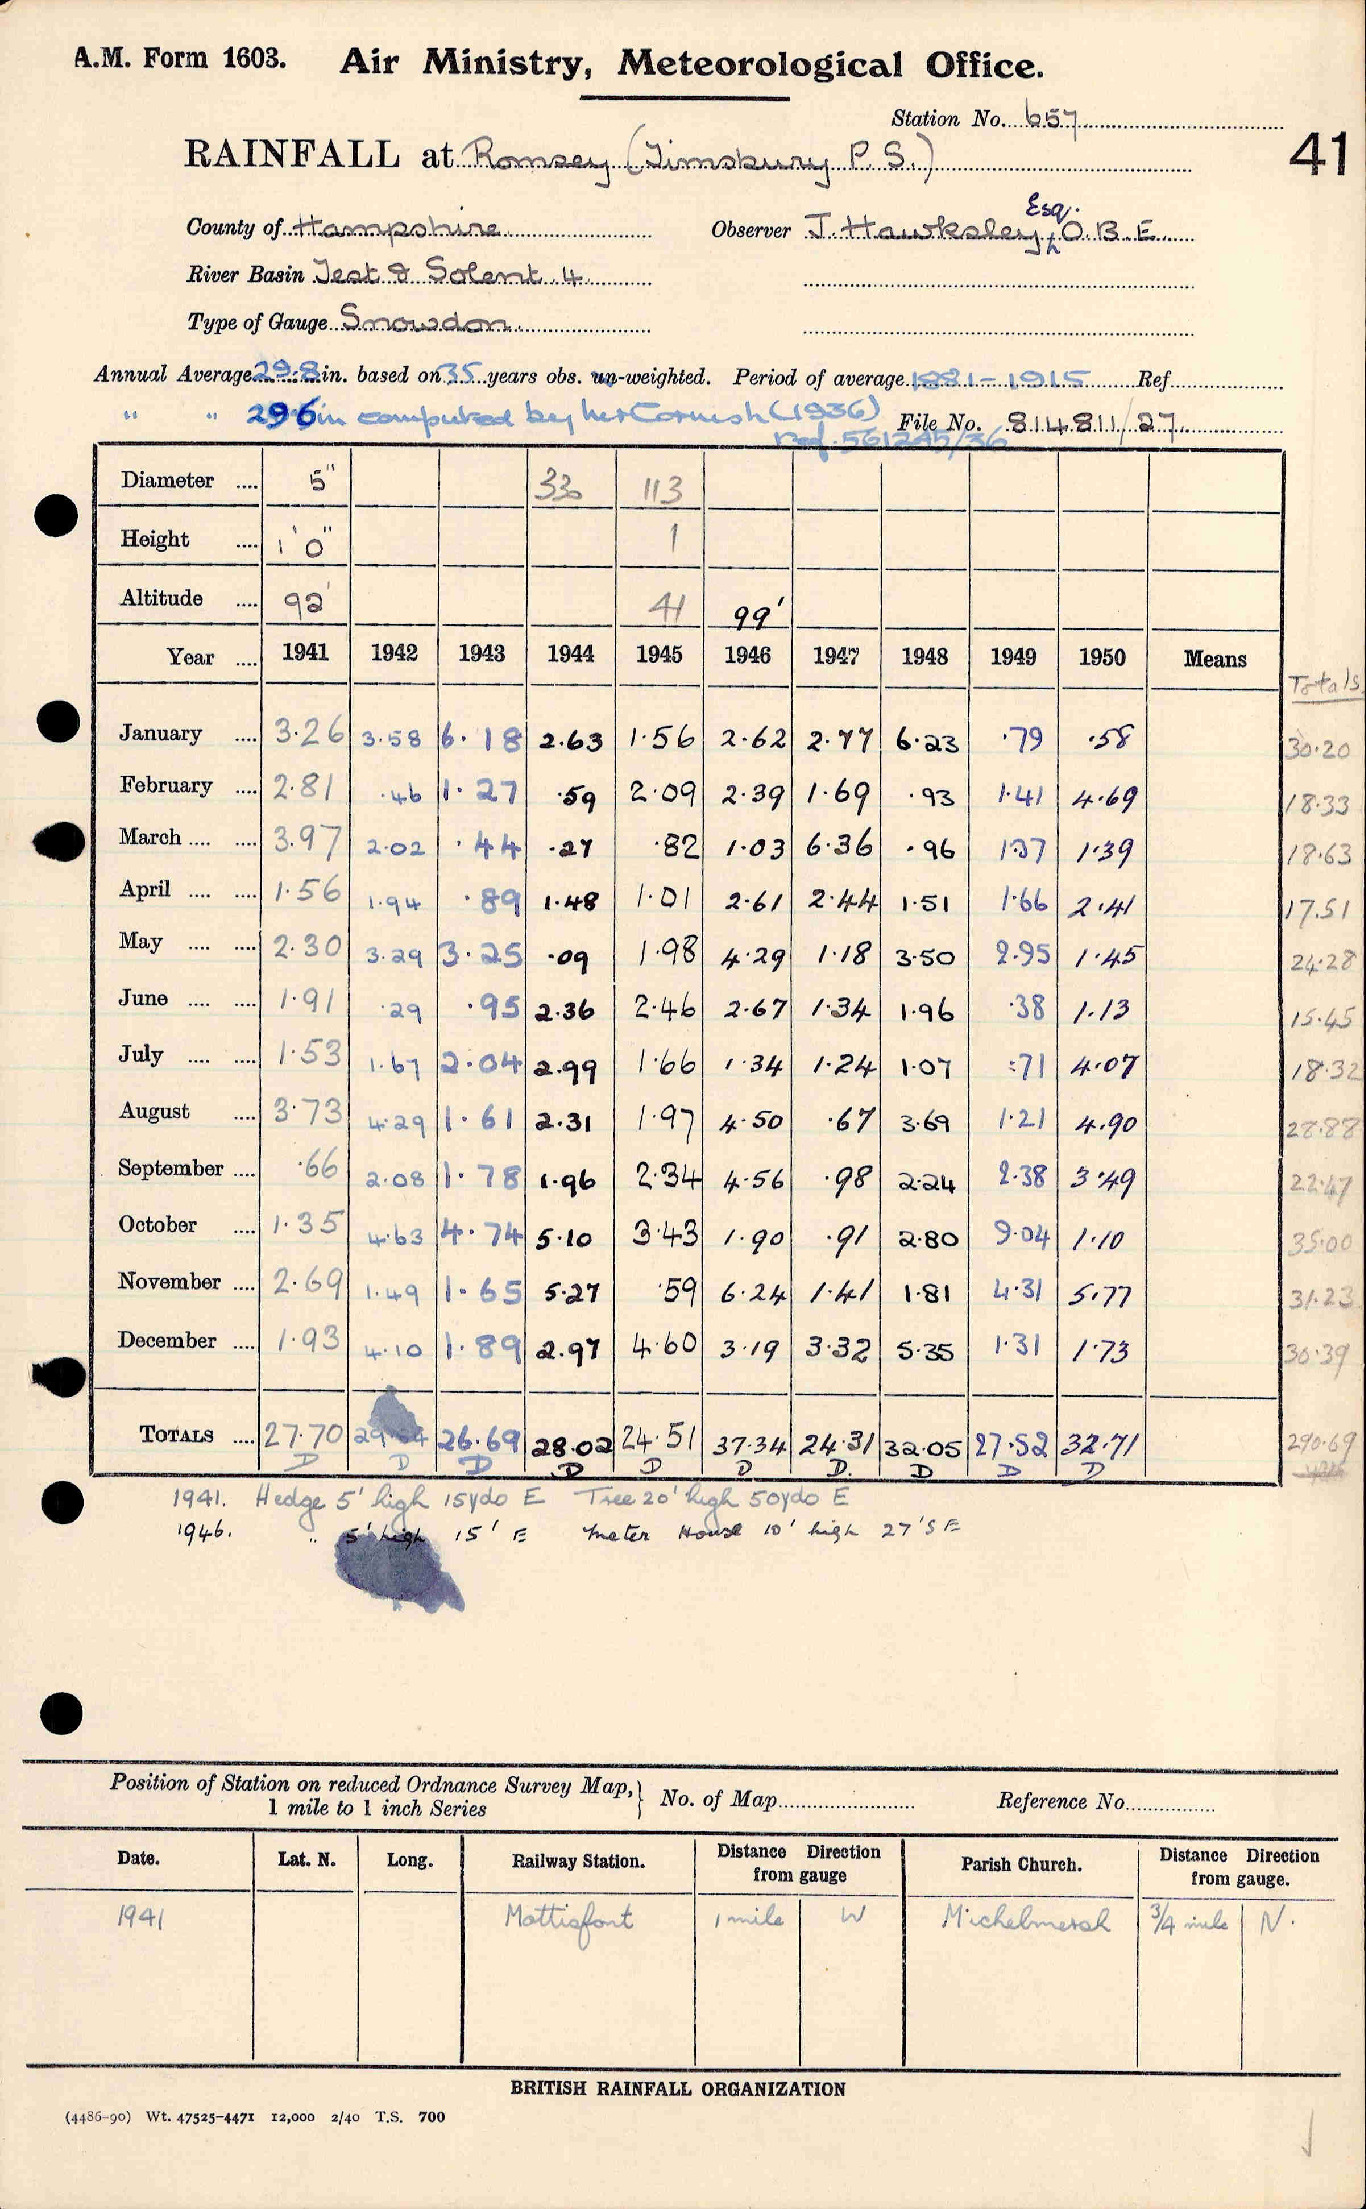 A.M. Form 1603. Air Ministry, Meteorological Office.
Station No. 657
41
RAINFALL at Romsey (Timsbury P.S.)
County of Hampshire Observer J. Hawksley Esq. O.B.E.
River Basin Test & Solent 4
Type of Gauge Snowdon
Annual Average 29.8 in. based on 35 years obs. un-weighted. Period of average 1881-1915 Ref
" " 29.6 in computed by Cornish (1936) File No. 814811/27
Ref. 561245/36
Diameter .... 5" 33 113
Height .... 1' 0" 1
Altitude .... 92' 41 99'
Year .... 1941 1942 1943 1944 1945 1946 1947 1948 1949 1950 Means Totals
January .... 3.26 3.58 6.18 2.63 1.56 2.62 2.77 6.23 .79 .58 30.20
February .... 2.81 .46 1.27 .59 2.09 2.39 1.69 .93 1.41 4.69 18.33
March .... .... 3.97 2.02 .44 .27 .82 1.03 6.36 .96 1.37 1.39 18.63
April .... .... 1.56 1.94 .89 1.48 1.01 2.61 2.44 1.51 1.66 2.41 17.51
May .... .... 2.30 3.29 3.25 .09 1.98 4.29 1.18 3.50 2.95 1.45 24.28
June .... .... 1.91 .29 .95 2.36 2.46 2.67 1.34 1.96 .38 1.13 15.45
July .... .... 1.53 1.67 2.04 2.99 1.66 1.34 1.24 1.07 .71 4.07 18.32
August .... 3.73 4.29 1.61 2.31 1.97 4.50 .67 3.69 1.21 4.90 28.88
September .... .66 2.08 1.78 1.96 2.34 4.56 .98 2.24 2.38 3.49 22.47
October .... 1.35 4.63 4.74 5.10 3.43 1.90 .91 2.80 9.04 1.10 35.00
November .... 2.69 1.49 1.65 5.27 .59 6.24 1.41 1.81 4.31 5.77 31.23
December .... 1.93 4.10 1.89 2.97 4.60 3.19 3.32 5.35 1.31 1.73 30.39
TOTALS .... 27.70 29.84 26.69 28.02 24.51 37.34 24.31 32.05 27.52 32.71 290.69
D D D D D D D. D D D
1941. Hedge 5' high 15yds E Tree 20' high 50yds E
1946. " 5' high 15' E Meter House 10' high 27' SE
Position of Station on reduced Ordnance Survey Map, } No. of Map Reference No.
1 mile to 1 inch Series
Date. Lat. N. Long. Railway Station. Distance Direction from gauge Parish Church. Distance Direction from gauge.
1941 Mottisfont 1 mile W Michelmersh 3/4 mile N.
BRITISH RAINFALL ORGANIZATION
(4486-90) Wt. 47525-4471 12,000 2/40 T.S. 700